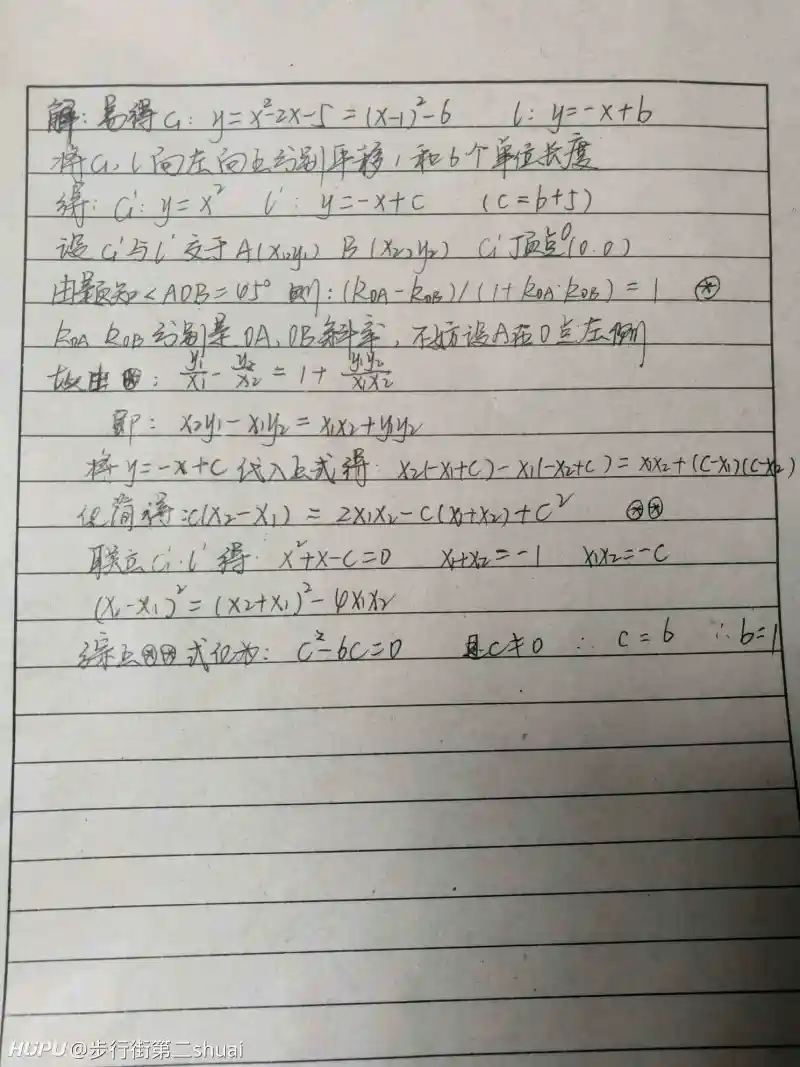 解:易得C₁: y=x²-2x-5=(x-1)²-6 l: y=-x+b
将C₁、l向左向上分别平移1和6个单位长度
得: C₁': y=x² l': y=-x+c (c=b+5)
设C₁'与l'交于A(x₁,y₁) B(x₂,y₂) C₁'顶点O(0.0)
由题知<AOB=45° 则:(kOA-kOB)/(1+kOA·kOB)=1 ⊛
kOA kOB分别是OA、OB斜率,不妨设A在O点左侧
故由⊛: y₁/x₁ - y₂/x₂ = 1 + y₁y₂/x₁x₂
即: x₂y₁-x₁y₂=x₁x₂+y₁y₂
将y=-x+c代入上式得: x₂(-x₁+c)-x₁(-x₂+c)=x₁x₂+(c-x₁)(c-x₂)
化简得:c(x₂-x₁)=2x₁x₂-c(x₁+x₂)+c² ⊛⊛
联立C₁'.l'得: x²+x-c=0 x₁+x₂=-1 x₁x₂=-c
(x₂-x₁)²=(x₂+x₁)²-4x₁x₂
综上⊛⊛式化为: c²-6c=0 且c≠0 ∴ c=6 ∴b=1
HUPU @步行街第二shuai